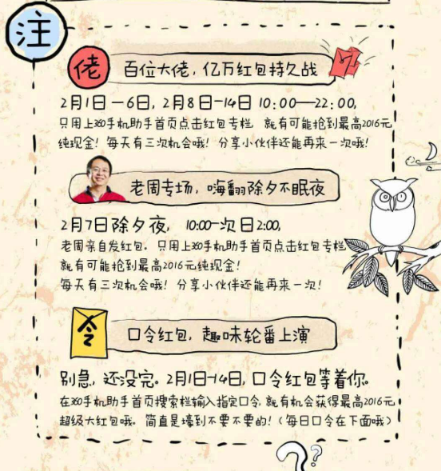 注
佬 百位大佬，亿万红包持久战
2月1日—6日，2月8日—14日 10:00—22:00，
只用上360手机助手首页点击红包专栏 就有可能抢到最高2016元
纯现金！每天有三次机会哦！分享小伙伴还能再来一次哦！
老周专场，嗨翻除夕不眠夜
2月7日除夕夜， 10:00—次日2:00，
老周亲自发红包，只用上360手机助手首页点击红包专栏
就有可能抢到最高2016元纯现金！
每天有三次机会哦！分享小伙伴还能再来一次！
令 口令红包，趣味轮番上演
别急，还没完。2月1日-14日，口令红包等着你。
在360手机助手首页搜索栏输入指定口令 就有机会获得最高2016元
超级大红包哦，简直是壕到不要不要的！（每日口令在下面哦）
??